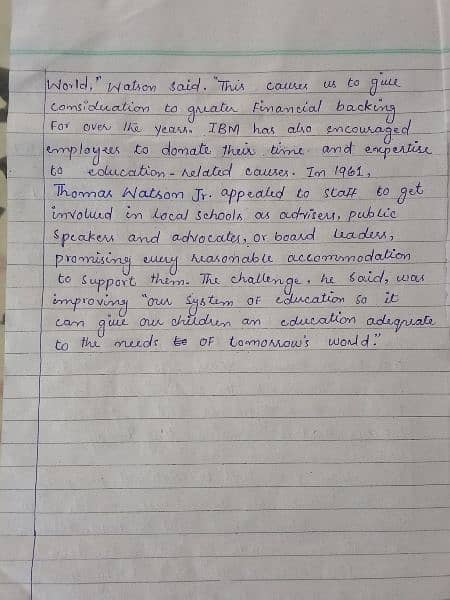 World," Watson said. "This causes us to give
consideration to greater Financial backing
For over the years. IBM has also encouraged
employees to donate their time and expertise
to education - related causes. In 1961,
Thomas Watson Jr. appealed to staff to get
involved in local schools as advisers, public
speakers and advocates, or board leaders,
promising every reasonable accommodation
to support them. The challenge, he said, was
improving "our system OF education so it
can give our children an education adequate
to the needs to OF tomorrow's world."